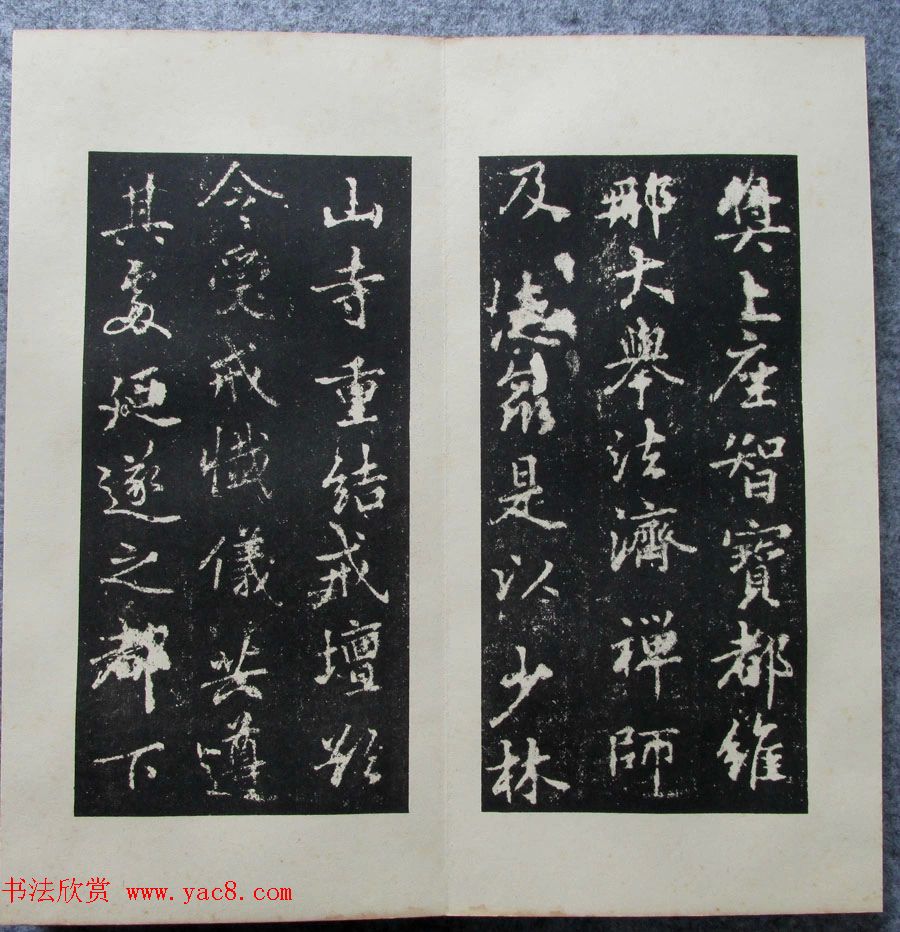 奘上座智寶都維
那大舉法濟禪師
及眾是以少林
山寺重結戒壇
令受戒懺儀共遵
其處迺遂之都下
书法欣赏 www.yac8.com